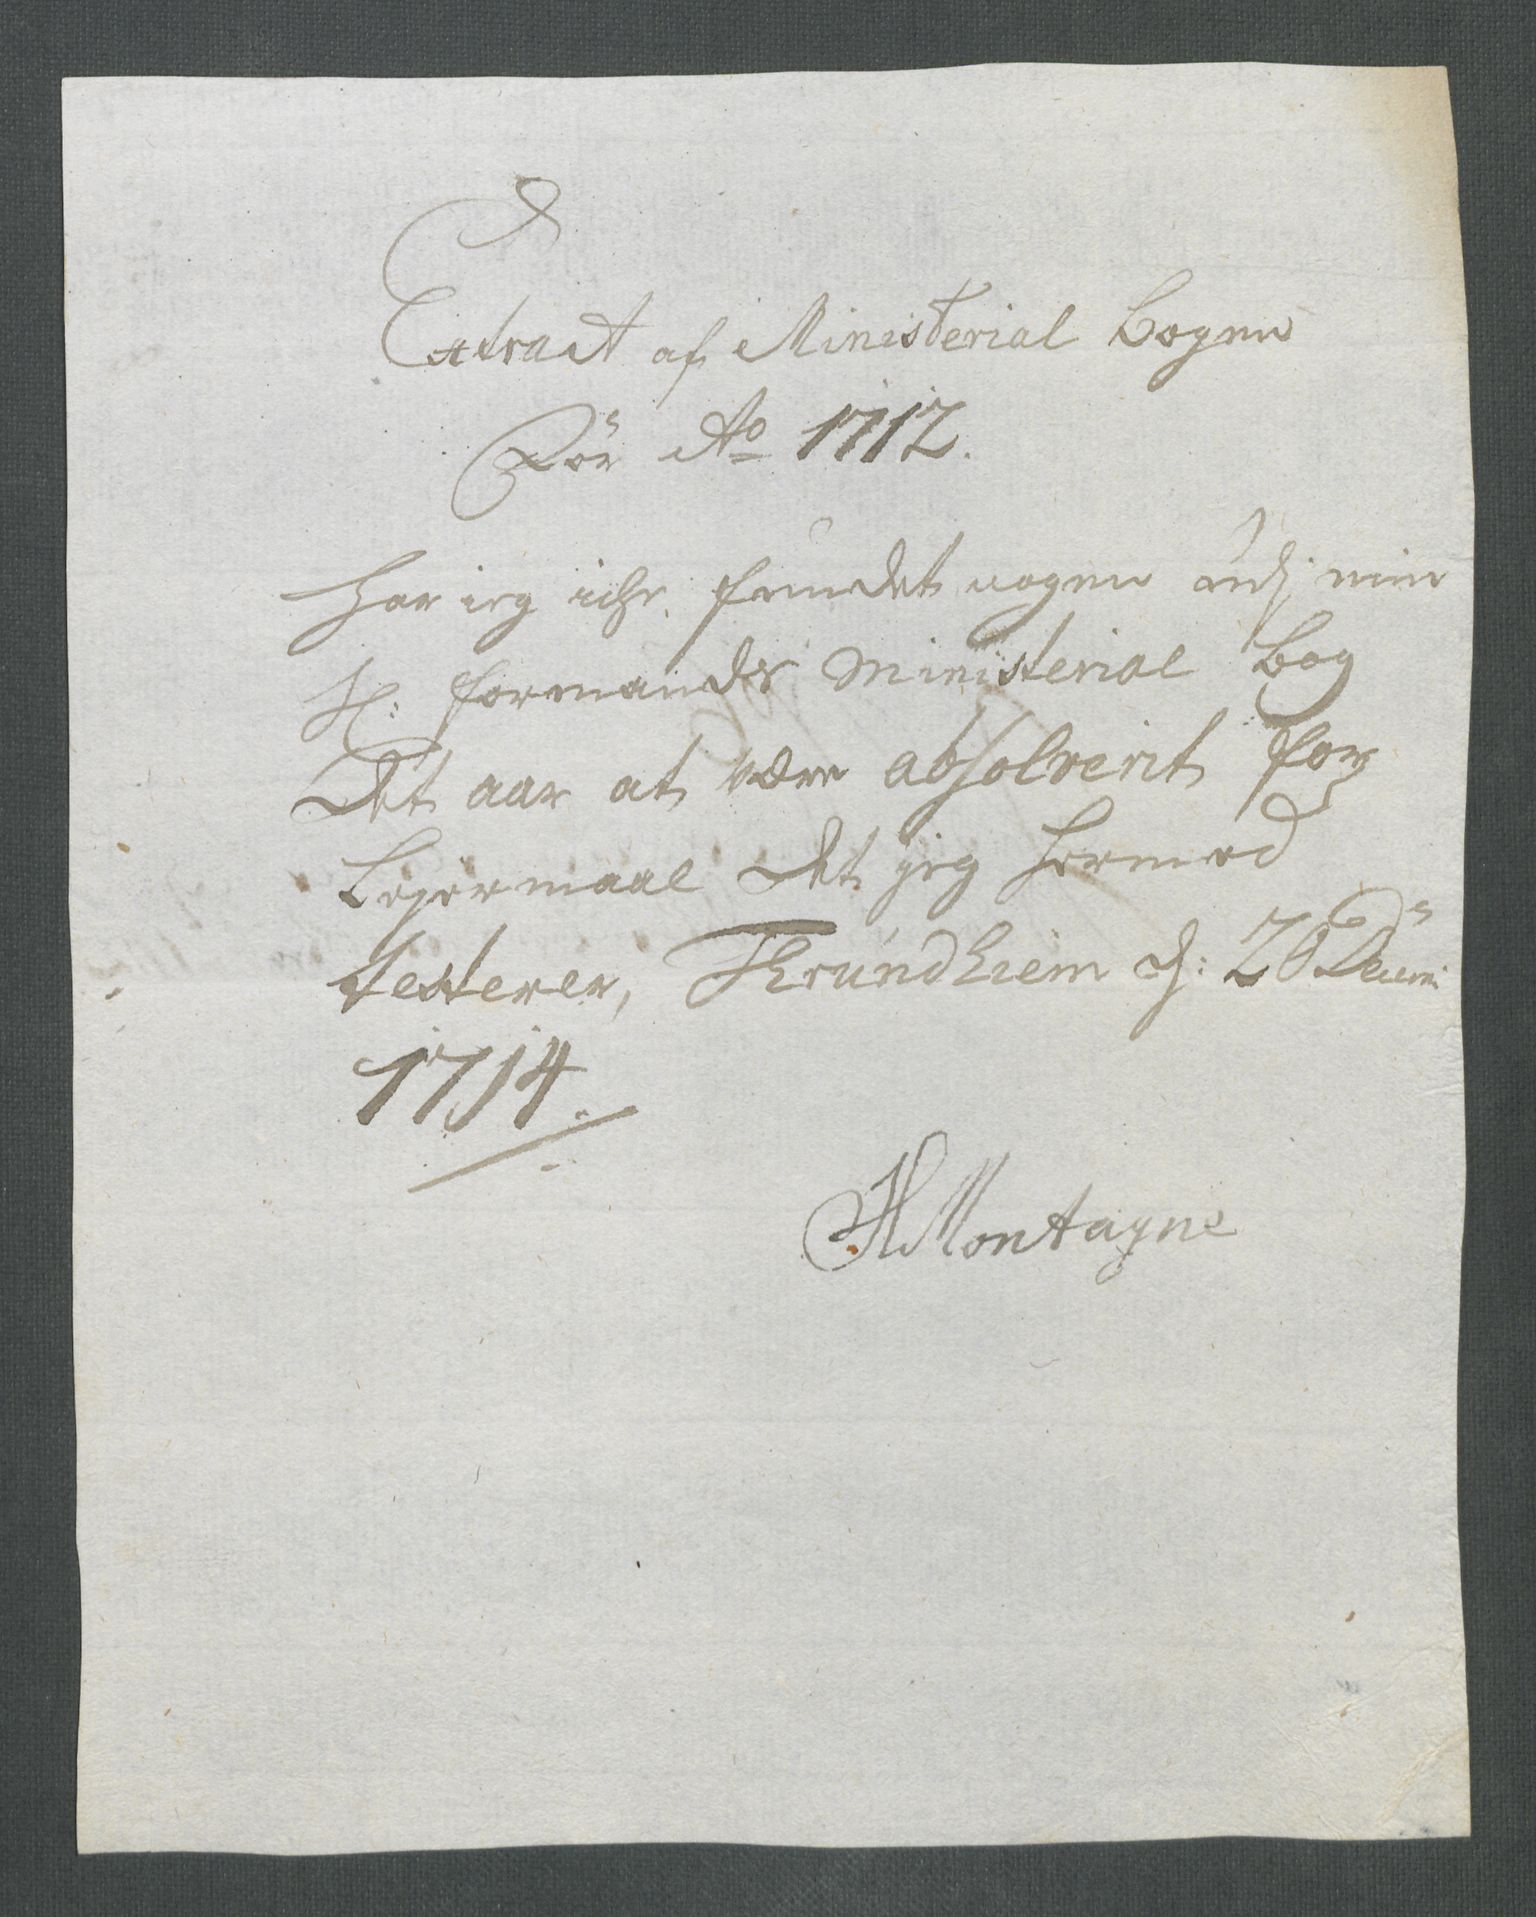 Extract af Ministerial Bogen
För Ao 1712.
Har ieg iche fundet nogen udj min
H: formands Ministerial Bog
Det aar at være absolverit for
Leyermaal Det jeg hermed
testerer, Thrundhiem d: 26
1714.
HMontagne